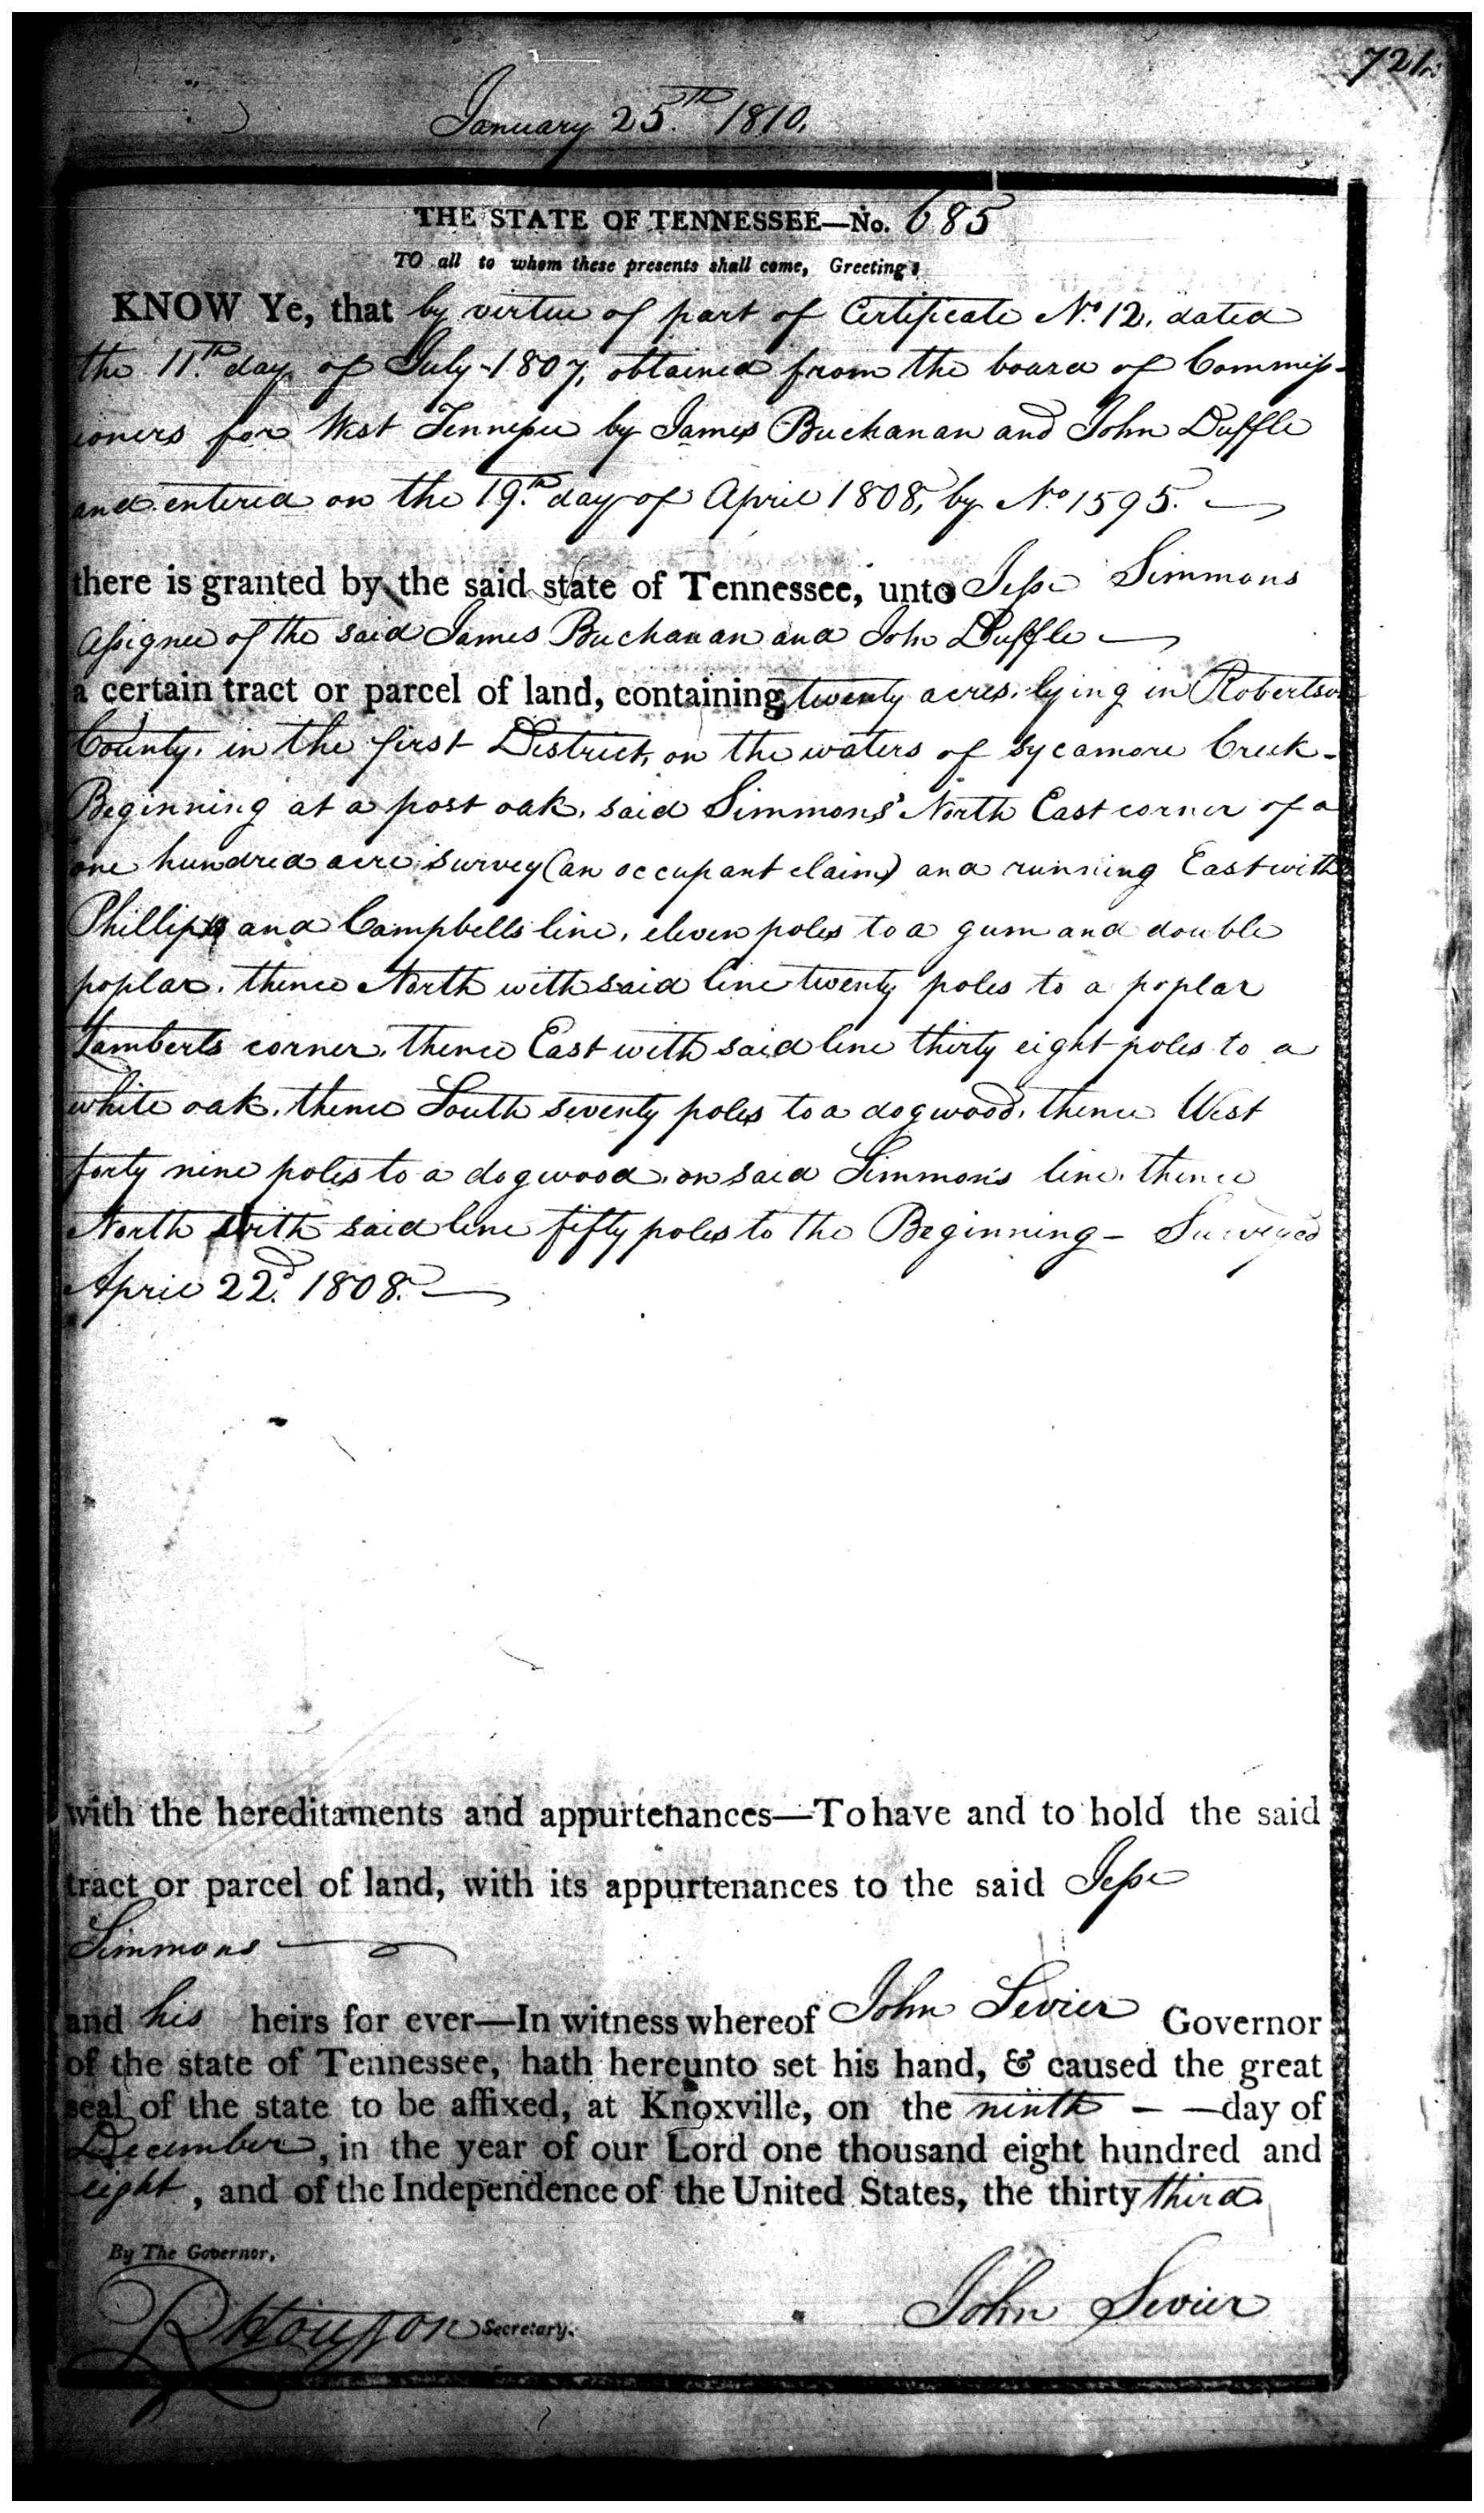 721
January 25.th 1810.
THE STATE OF TENNESSEE—No. 685
TO all to whom these presents shall come, Greeting:
KNOW Ye, that by virtue of part of Certificate No. 12, dated
the 11.th day of July 1807, obtained from the board of Commiss-
ioners for West Tennessee by James Buchanan and John Duffle
and entered on the 19.th day of April 1808, by No. 1595. —
there is granted by the said state of Tennessee, unto Jesse Simmons
assignee of the said James Buchanan and John Duffle —
a certain tract or parcel of land, containing twenty acres, lying in Robertson
County, in the first District, on the waters of Sycamore Creek -
Beginning at a post oak, said Simmons' North East corner of a
one hundred acre survey (an occupant claim) and running East with
Phillips and Campbells line, eleven poles to a gum and double
poplar, thence North with said line twenty poles to a poplar
Lamberts corner, thence East with said line thirty eight poles to a
white oak, thence South seventy poles to a dogwood, thence West
forty nine poles to a dogwood, on said Simmons line, thence
North with said line fifty poles to the Beginning - Surveyed
April 22.d 1808. —
with the hereditaments and appurtenances—To have and to hold the said
tract or parcel of land, with its appurtenances to the said Jesse
Simmons —
and his heirs for ever—In witness whereof John Sevier Governor
of the state of Tennessee, hath hereunto set his hand, & caused the great
seal of the state to be affixed, at Knoxville, on the ninth - —day of
December, in the year of our Lord one thousand eight hundred and
eight, and of the Independence of the United States, the thirty third.
By The Governor,
John Sevier
R Houston Secretary.